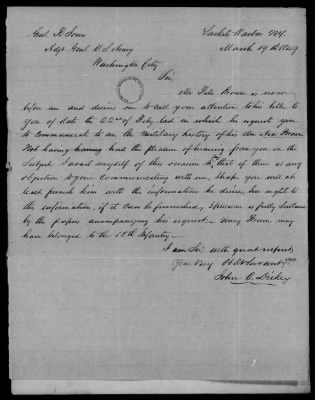 Genl R Jones Sackets Harbor N.Y.
Adjt Genl U S Army March 19th 1849
Washington City
Sir
Mr Peter Brown is now
before me and desires me to call your attention to his letter to
you of date the 22nd of Feby last in which he request you
to communicate to me the military history of his son
Not having having had the pleasure of hearing from you on the
subject I avail myself of this occasion that if there is any
objection to your communicating with me, I hope you will at
least furnish him with the information he desires, his right to
the information, if it can be furnished, I presume is fully sustained
by the papers accompanying his request — may have
have belonged to the 10th Infantry —
I am Sir with great respect
Your Very Obdt Servant
John O. Dickey